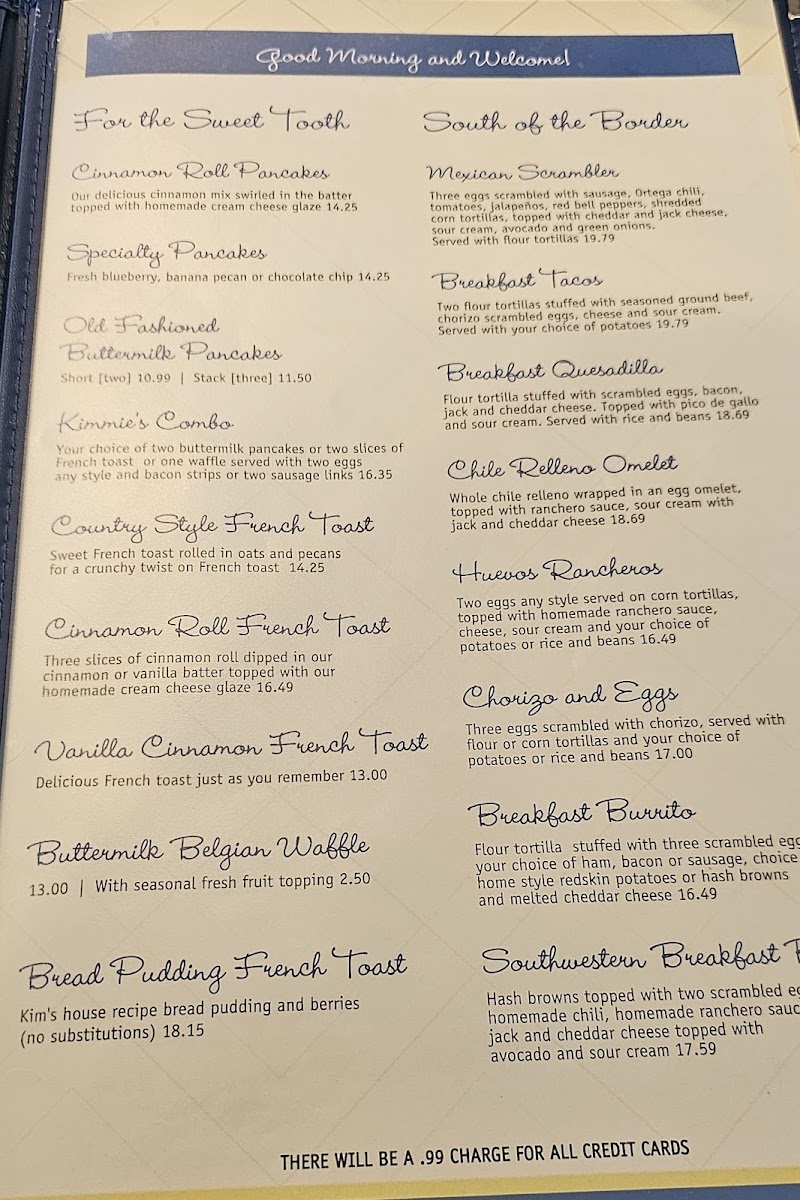 Good Morning and Welcome!
For the Sweet Tooth
Cinnamon Roll Pancakes
Our delicious cinnamon mix swirled in the batter
topped with homemade cream cheese glaze 14.25
Specialty Pancakes
Fresh blueberry, banana pecan or chocolate chip 14.25
Old Fashioned
Buttermilk Pancakes
Short [two] 10.99 | Stack [three] 11.50
Kimmie's Combo
Your choice of two buttermilk pancakes or two slices of
French toast or one waffle served with two eggs
any style and bacon strips or two sausage links 16.35
Country Style French Toast
Sweet French toast rolled in oats and pecans
for a crunchy twist on French toast 14.25
Cinnamon Roll French Toast
Three slices of cinnamon roll dipped in our
cinnamon or vanilla batter topped with our
homemade cream cheese glaze 16.49
Vanilla Cinnamon French Toast
Delicious French toast just as you remember 13.00
Buttermilk Belgian Waffle
13.00 | With seasonal fresh fruit topping 2.50
Bread Pudding French Toast
Kim's house recipe bread pudding and berries
(no substitutions) 18.15
South of the Border
Mexican Scrambler
Three eggs scrambled with sausage, Ortega chili,
tomatoes, jalapeños, red bell peppers, shredded
corn tortillas, topped with cheddar and jack cheese,
sour cream, avocado and green onions.
Served with flour tortillas 19.79
Breakfast Tacos
Two flour tortillas stuffed with seasoned ground beef,
chorizo scrambled eggs, cheese and sour cream.
Served with your choice of potatoes 19.79
Breakfast Quesadilla
Flour tortilla stuffed with scrambled eggs, bacon,
jack and cheddar cheese. Topped with pico de gallo
and sour cream. Served with rice and beans 18.69
Chile Relleno Omelet
Whole chile relleno wrapped in an egg omelet,
topped with ranchero sauce, sour cream with
jack and cheddar cheese 18.69
Huevos Rancheros
Two eggs any style served on corn tortillas,
topped with homemade ranchero sauce,
cheese, sour cream and your choice of
potatoes or rice and beans 16.49
Chorizo and Eggs
Three eggs scrambled with chorizo, served with
flour or corn tortillas and your choice of
potatoes or rice and beans 17.00
Breakfast Burrito
Flour tortilla stuffed with three scrambled
your choice of ham, bacon or sausage, choice
home style redskin potatoes or hash browns
and melted cheddar cheese 16.49
Southwestern Breakfast
Hash browns topped with two scrambled
homemade chili, homemade ranchero
jack and cheddar cheese topped with
avocado and sour cream 17.59
THERE WILL BE A .99 CHARGE FOR ALL CREDIT CARDS